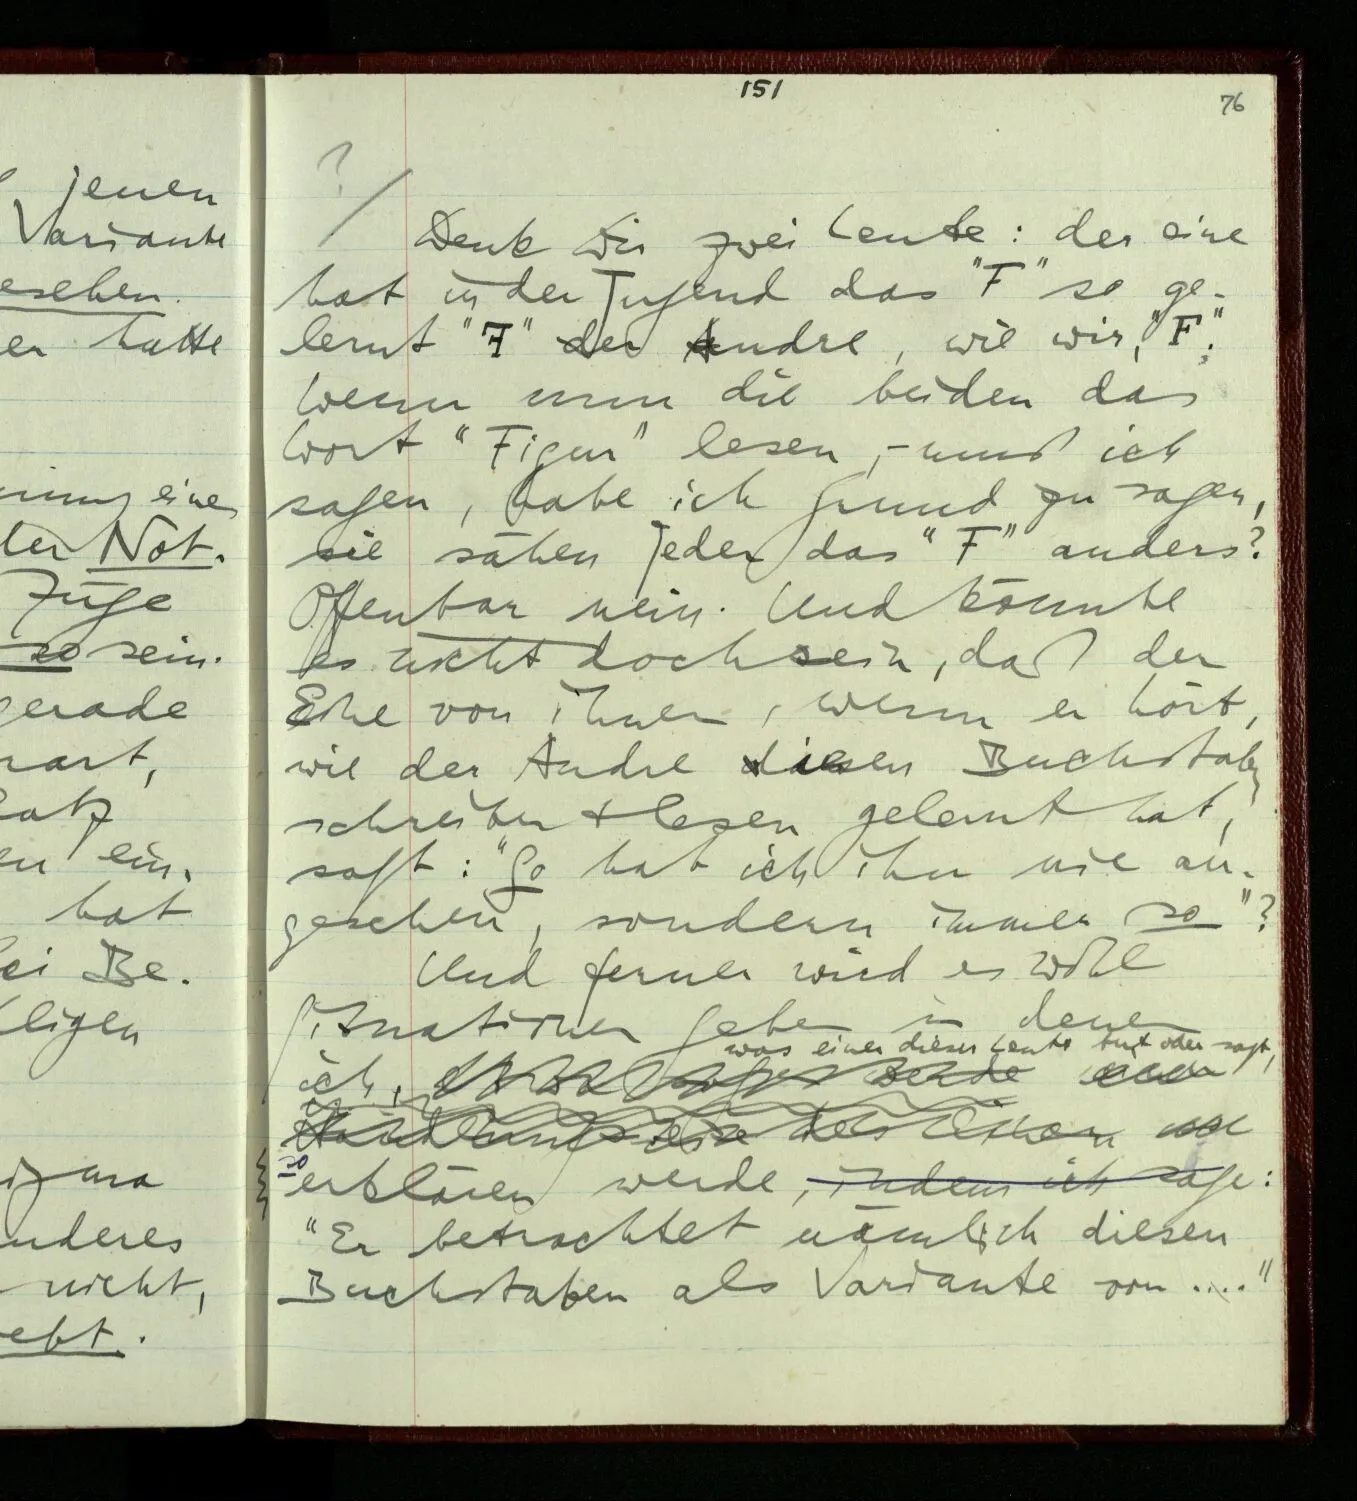 jenen
Variante
esehen.
er hatte
eine
der Not-
Züge
so sein.
gerade
art,
satz
en ein,
hat
bei Be-
ligen
anderes
nicht,
ebt.
151
76
?
Denk Dir zwei Leute: der eine
hat in der Jugend das "F" so ge-
lernt "ꟻ" der Andre, wie wir, "F".
Wenn nun die beiden das
Wort "Figur" lesen, – muß ich
sagen, habe ich Grund zu sagen,
sie sähen jeder das "F" anders?
Offenbar nein. Und könnte
es nicht doch sein, daß der
Eine von ihnen, wenn er hört,
wie der Andre diesen Buchstaben
schreiben & lesen gelernt hat,
sagt: "So hab ich ihn nie an-
gesehen, sondern immer so"?
Und ferner wird es wohl
Situationen geben in denen
was einer dieser Leute tut oder sagt,
ich, werde
des
so
erklären werde, indem ich sage:
"Er betrachtet nämlich diesen
Buchstaben als Variante von ...."